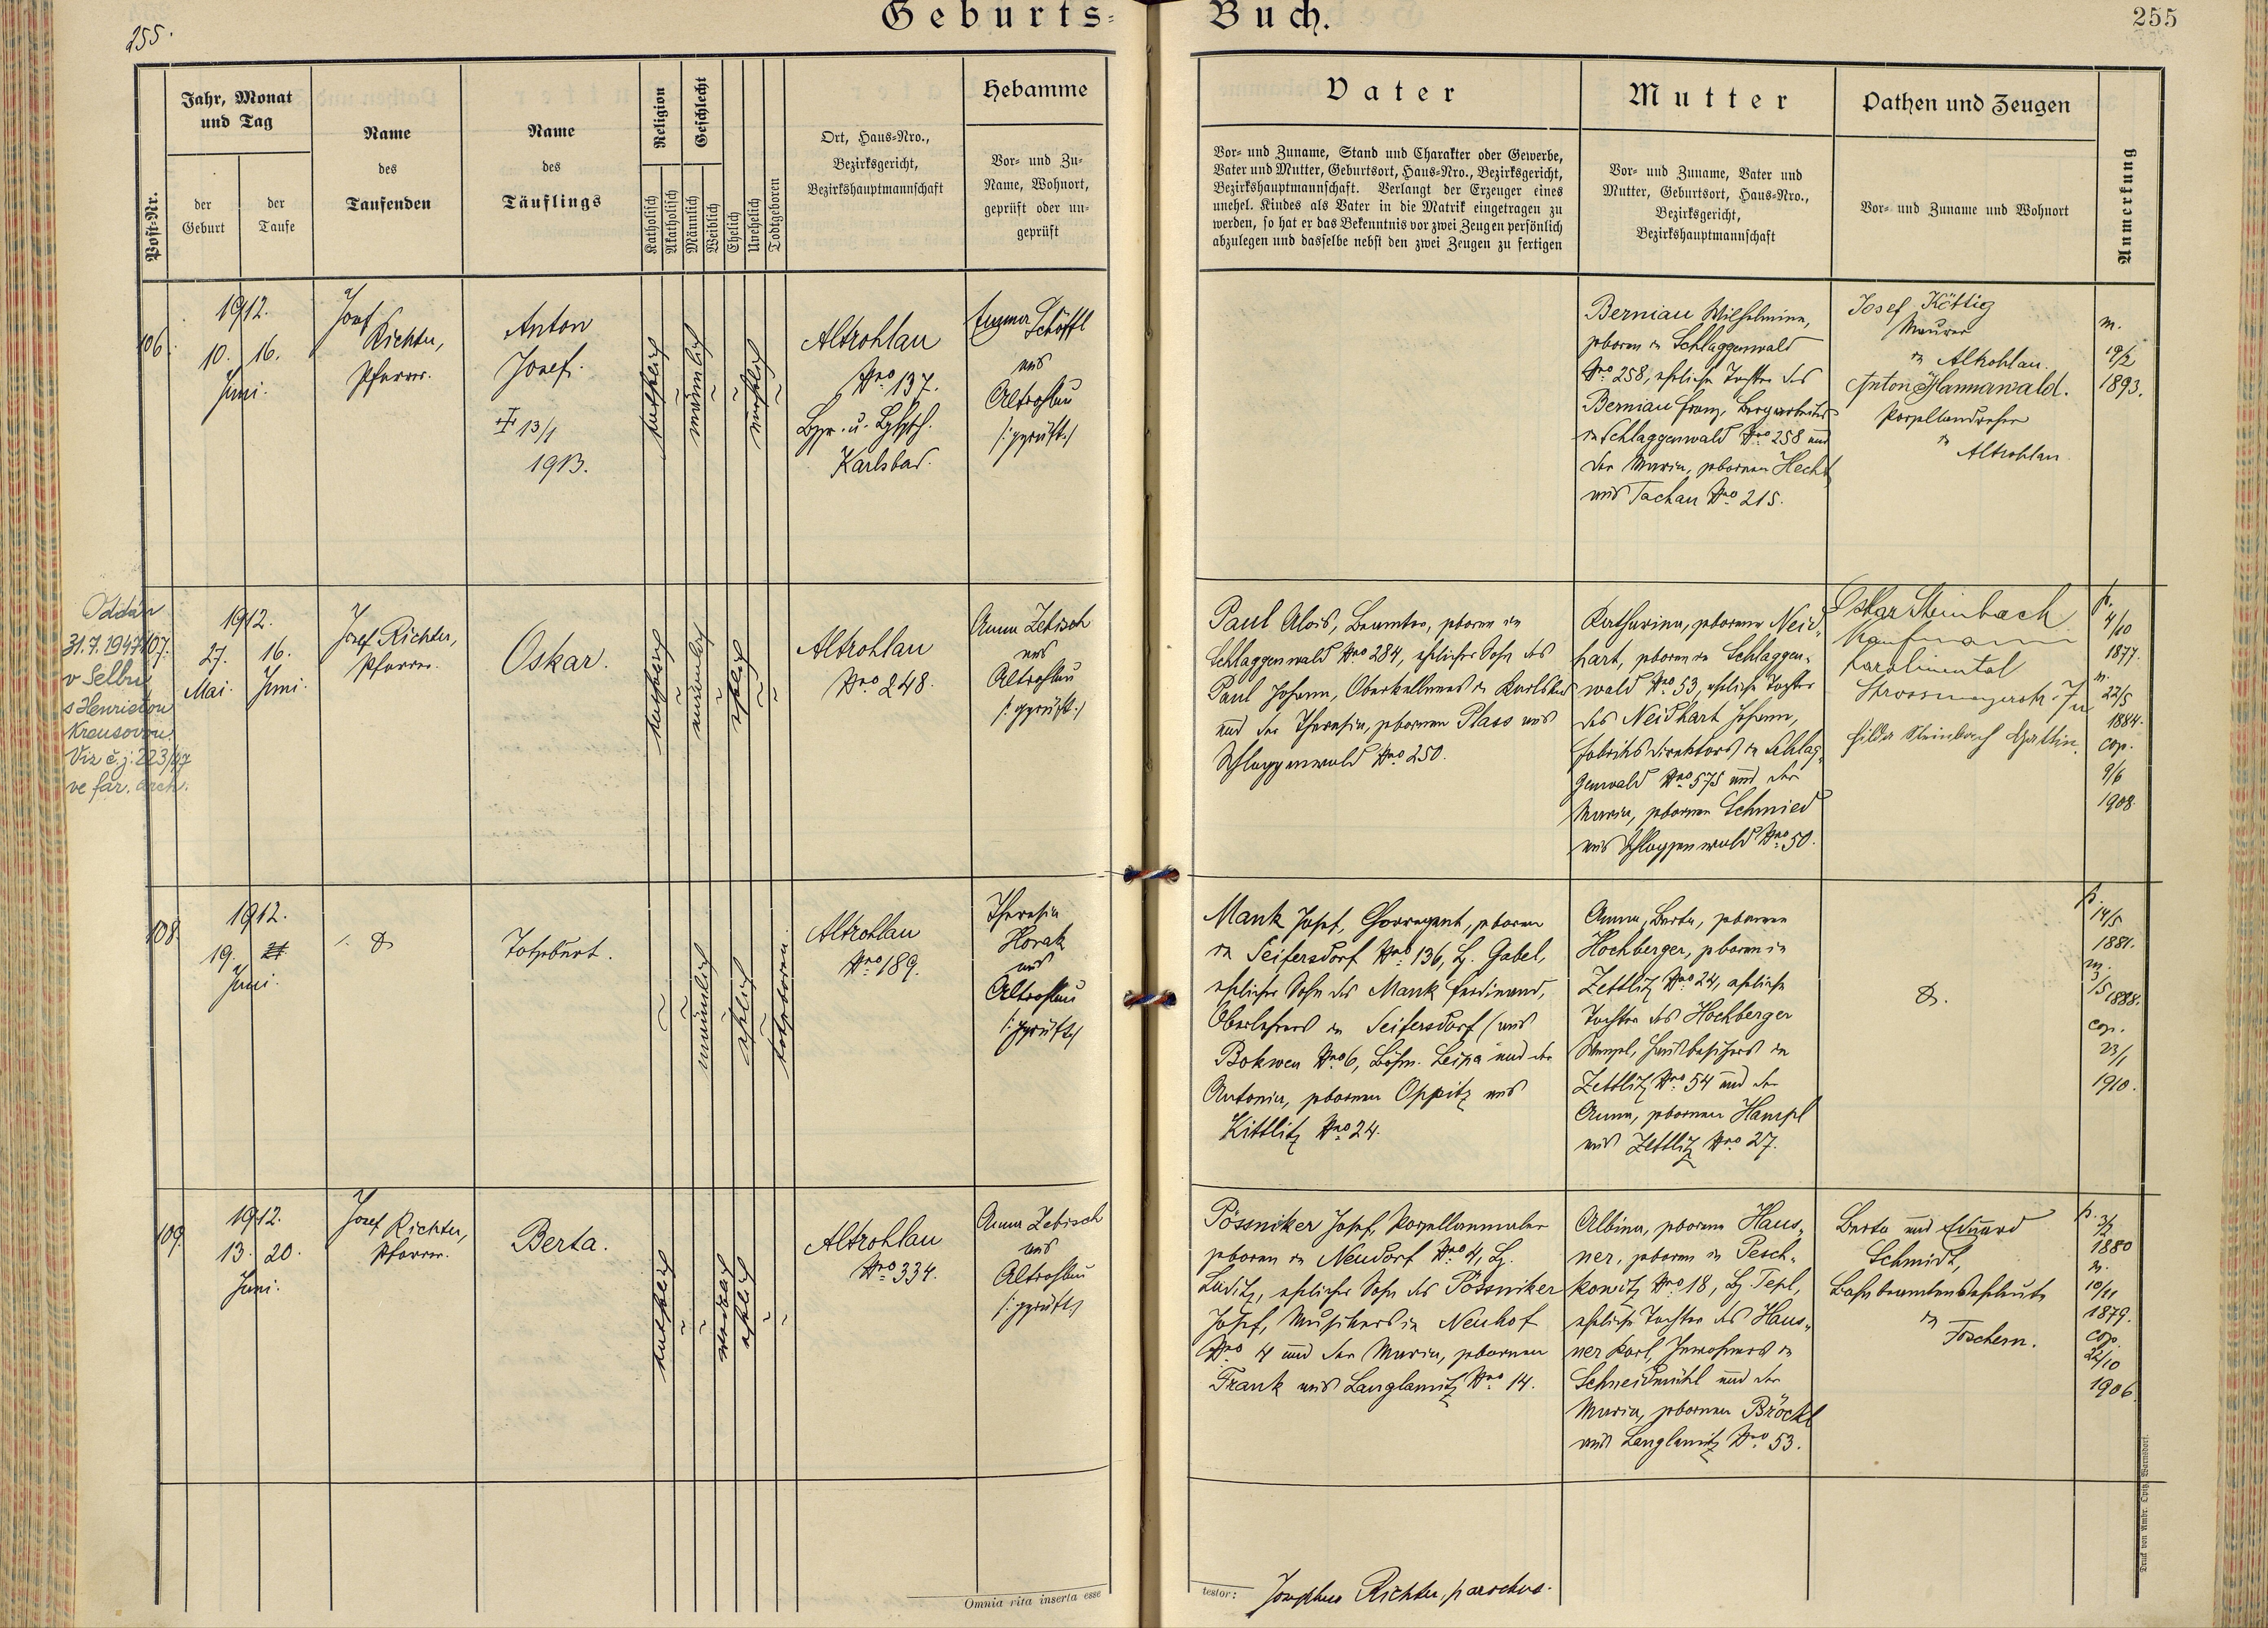 Geburts-Buch.
255.
255
Post-Nr.
Jahr, Monat
und Tag
der
Geburt
der
Taufe
Name
des
Taufenden
Name
des
Täuflings
Religion
Katholisch
Akatholisch
Geschlecht
Männlich
Weiblich
Ehelich
Unehelich
Todtgeboren
Ort, Haus-Nro.,
Bezirksgericht,
Bezirkshauptmannschaft
Hebamme
Vor- und Zu-
Name, Wohnort,
geprüft oder un-
geprüft
Vater
Vor- und Zuname, Stand und Charakter oder Gewerbe,
Vater und Mutter, Geburtsort, Haus-Nro., Bezirksgericht,
Bezirkshauptmannschaft. Verlangt der Erzeuger eines
unehel. Kindes als Vater in die Matrik eingetragen zu
werden, so hat er das Bekenntnis vor zwei Zeugen persönlich
abzulegen und dasselbe nebst den zwei Zeugen zu fertigen
Mutter
Vor- und Zuname, Vater und
Mutter, Geburtsort, Haus-Nro.,
Bezirksgericht,
Bezirkshauptmannschaft
Pathen und Zeugen
Vor- und Zuname und Wohnort
Anmerkung
106.
1912.
10. 16.
Juni.
Josef
Richter,
Pfarrer.
Anton
Josef.
13/1
1913.
katholisch
männlich
unehelich
Altrohlau
Nro 137.
Karlsbad.
Schöffl
aus
Altrohlau
/:geprüft:/
Berniau Wilhelmine,
geboren in Schlaggenwald
Nro 258, eheliche Tochter des
Berniau Franz, Bergarbeiters
in Schlaggenwald Nro 258 und
der Maria, geborenen Hecht
aus Tachau Nro 215.
Josef Köttig
Maurer
in Altrohlau.
Anton Hannawald.
Porzellandreher
in
Altrohlau
m.
19/2
1893.
Oddán
31.7.1947
v Selbu
s Henriettou
Krausovou.
Viz č.j. 223/47
ve far. arch.
107.
1912.
27. 16.
Mai. Juni.
Josef Richter,
Pfarrer.
Oskar.
katholisch
männlich
ehelich
Altrohlau
Nro 248.
Anna Zebisch
aus
Altrohlau
/:geprüft:/
Paul Alois, Beamter, geboren in
Schlaggenwald Nro 284, ehelicher Sohn des
Paul Johann, Oberkellners in Karlsbad
und der Theresia, geborenen Plass aus
Schlaggenwald Nro 250.
Katharina, geborene Neid-
hart, geboren in Schlaggen-
wald Nro 53, eheliche Tochter
des Neidhart Johann,
Fabriksdirektors in Schlag-
genwald Nro 575 und der
Maria, geborenen Schmied
aus Schlaggenwald Nro 50.
Oskar Steinbach
Kaufmann
Karolinental
Hilda Steinbach Gattin.
p.
4/10
1877.
m.
22/5
1884.
cop.
9/6
1908.
108.
1912.
19.
Juni.
Totgeburt.
männlich
ehelich
totgeboren.
Altrohlau
Nro 189.
Theresia
Horak
aus
Altrohlau
/:geprüft:/
Mank Josef, Chorregent, geboren
in Seifersdorf Nro 136, Bz. Gabel,
ehelicher Sohn des Mank Ferdinand,
Oberlehrers in Seifersdorf (aus
Bokwen Nro 6, Böhm. Leipa und der
Antonia, geborenen Oppitz aus
Kittlitz Nro 24.
Anna, Berta, geborene
Hochberger, geboren in
Zettlitz Nro 24, eheliche
Tochter des Hochberger
Wenzel, Hausbesitzers in
Zettlitz Nro 54 und der
Anna, geborenen Hampl
aus Zettlitz Nro 27.
p.
14/5
1881.
m.
3/5 1888.
cop.
23/1
1910.
109.
1912.
13. 20.
Juni.
Josef Richter,
Pfarrer.
Berta.
katholisch
weiblich
ehelich
Altrohlau
Nro 334.
Anna Zebisch
aus
Altrohlau
/:geprüft:/
Pössniker Josef, Porzellanmaler
geboren in Neudorf Nro 4, Bz.
Luditz, ehelicher Sohn des Pössniker
Josef, Musikers in Neuhof
Nro 4 und der Maria, geborenen
Frank aus Langlamitz Nro 14.
Albina, geborene Haus-
ner, geboren in Pesch-
kowitz Nro 18, Bz. Tepl,
eheliche Tochter des Haus-
ner Karl, Inwohners in
Schneidmühl und der
Maria, geborenen Bröckl
aus Langlamitz Nro 53.
Berta und Eduard
Schmidt,
Bahnbeamtenseheleute
in
Fischern.
p. 3/2
1880
m.
10/11
1879.
cop.
22/10
1906
Omnia rita inserta esse
testor:
Josephus Richter, parochus.
Druck von Ambr. Opitz, Warnsdorf.